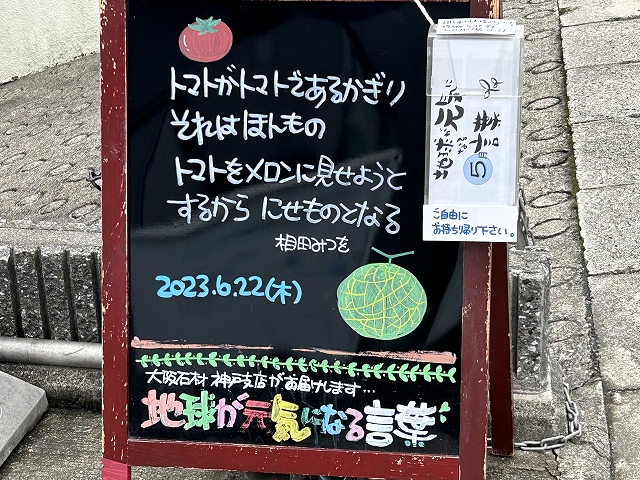 トマトがトマトであるかぎり
それは ほんもの
トマトをメロンに見せようと
するから にせものとなる
相田みつを
2023.6.22(木)
大阪石材 神戸支店がお届けします…
地球が元気になる言葉
5
ご自由に
お持ち帰り下さい。